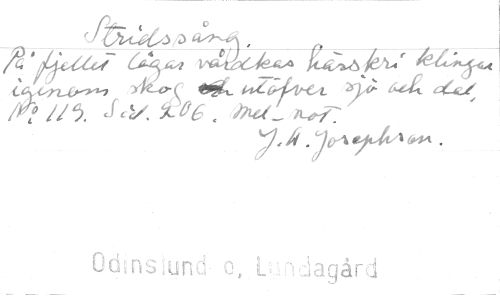 Stridssång.
På fjellet lågar vårdkas härskri klingar
igenom skog och utöfver sjö och dal,
No. 119. Sid. 206. Mel-not.
J. A. Josephson.
Odinslund o, Lundagård